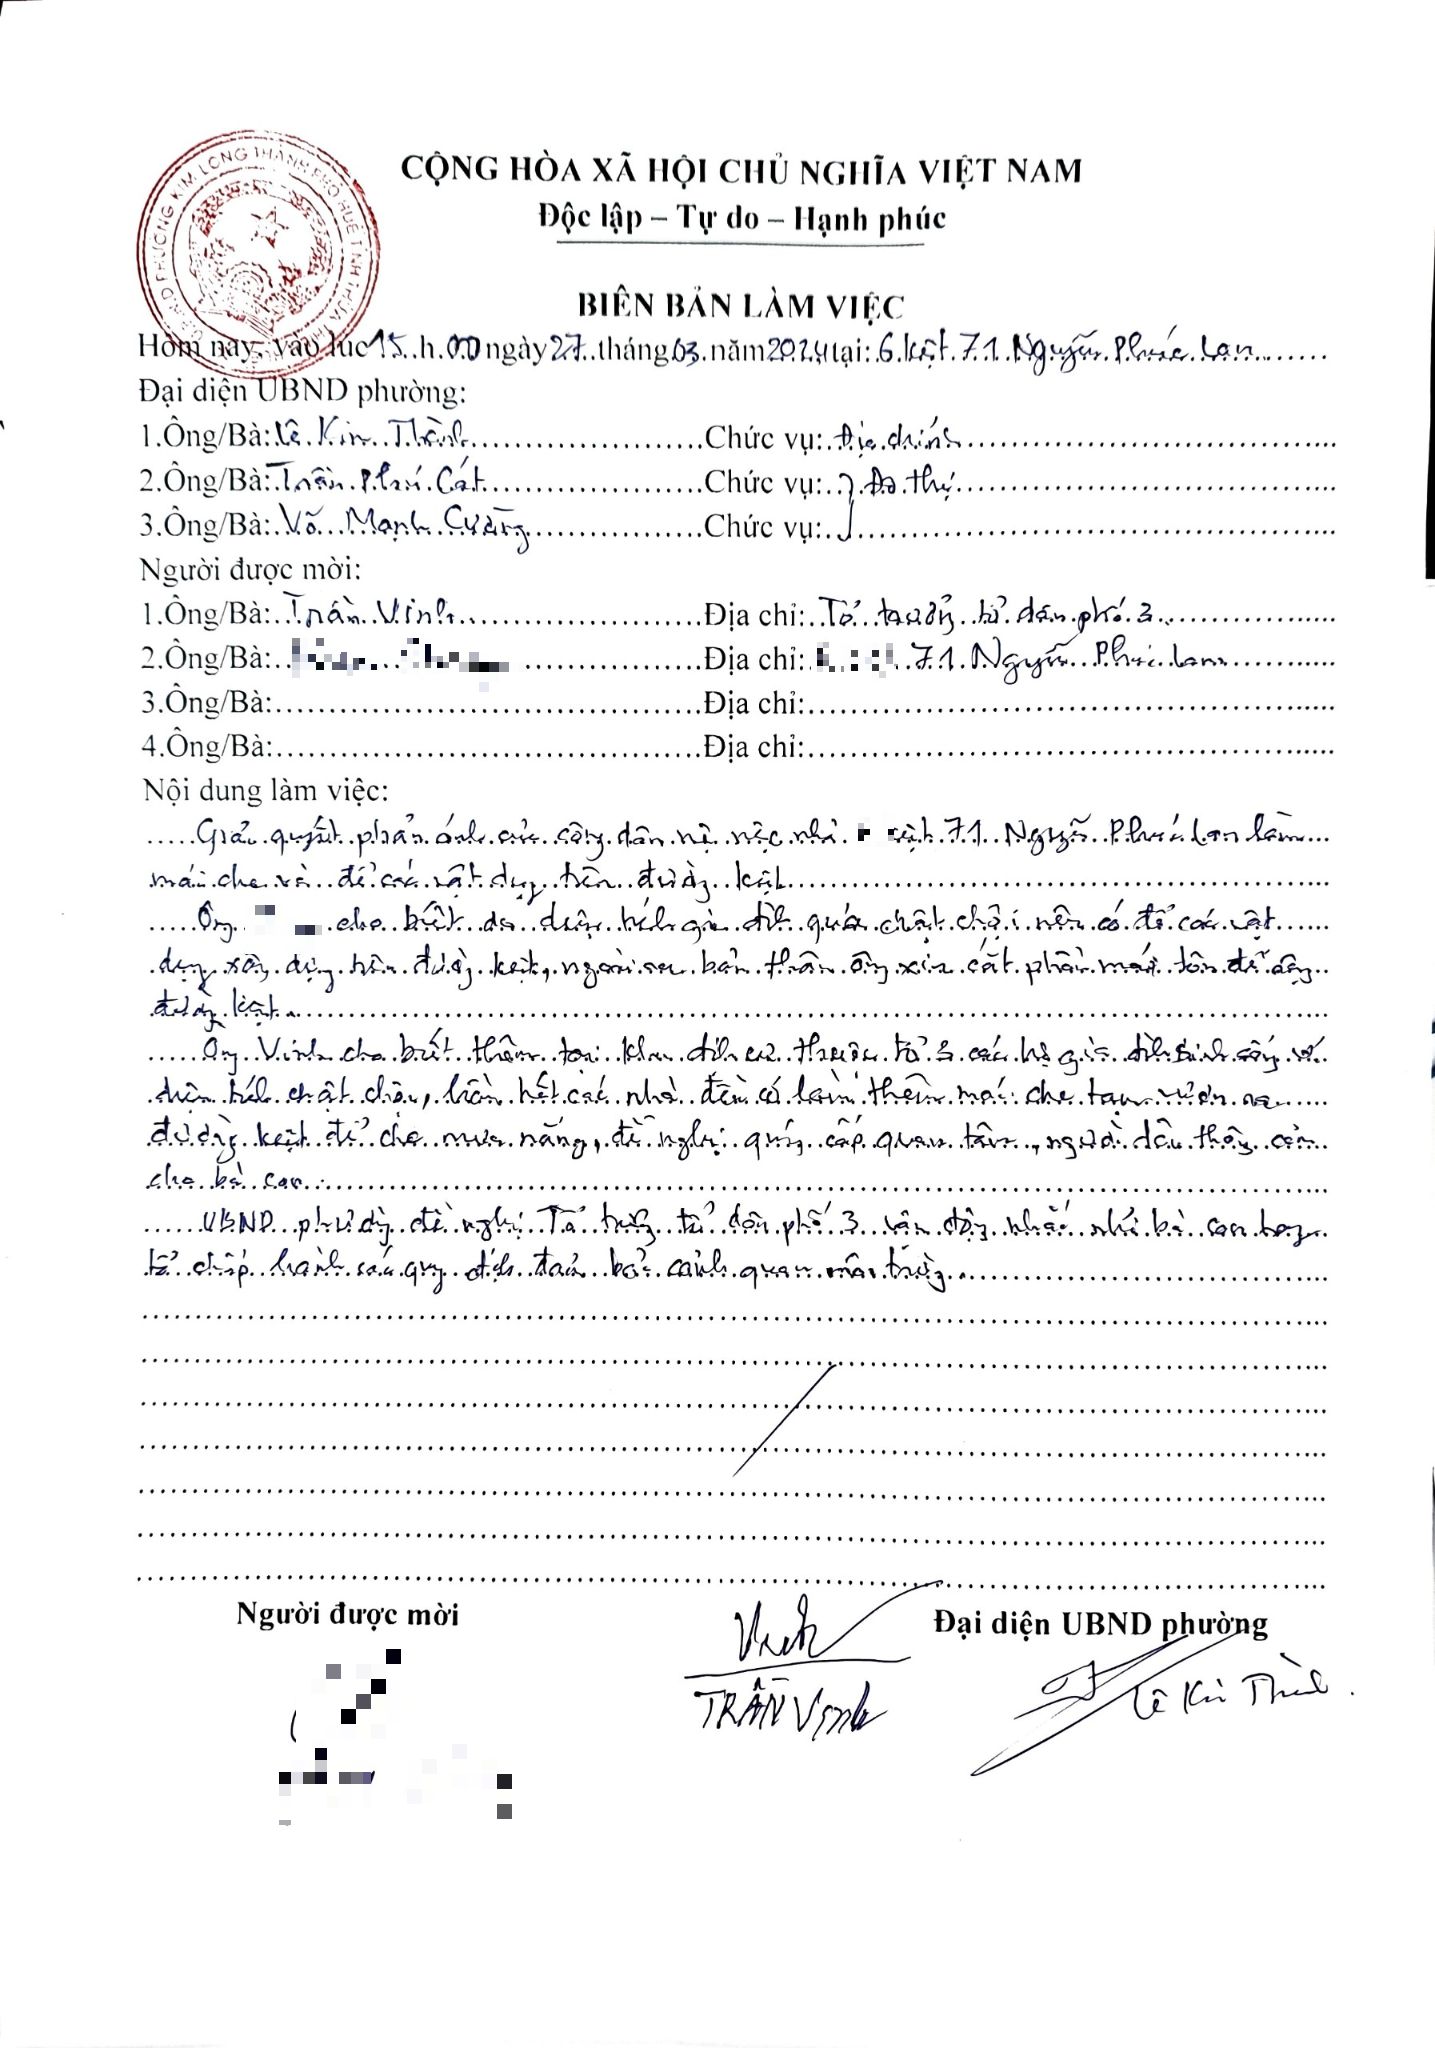 U.B.N.D PHƯỜNG KIM LONG THÀNH PHỐ HUẾ TỈNH THỪA TH
CỘNG HÒA XÃ HỘI CHỦ NGHĨA VIỆT NAM
Độc lập – Tự do – Hạnh phúc
BIÊN BẢN LÀM VIỆC
Hôm nay, vào lúc 15 h 00 ngày 27 tháng 03 năm 2024 tại: 6 kiệt 71 Nguyễn Phúc Lan
Đại diện UBND phường:
1.Ông/Bà: Lê Kim Thành Chức vụ: Địa chính
2.Ông/Bà: Trần Phú Cát Chức vụ: Đô thị
3.Ông/Bà: Võ Mạnh Cường Chức vụ:
Người được mời:
1.Ông/Bà: Trần Vinh Địa chỉ: Tổ trưởng tổ dân phố 3
2.Ông/Bà: Địa chỉ: 71 Nguyễn Phúc Lan
3.Ông/Bà: Địa chỉ:
4.Ông/Bà: Địa chỉ:
Nội dung làm việc:
Giải quyết phản ánh của công dân nhà kiệt 71 Nguyễn Phúc Lan làm
mái che và để các vật dụng trên đường kiệt
Ông cho biết do diện tích gia đình quá chật chội nên có để các vật
dụng xây dựng trên đường kiệt, ngoài ra bản thân ông xin cắt phần mái tôn để
đường kiệt.
Ông Vinh cho biết thêm tại khu định cư thuộc tổ 3 các hộ gia đình sinh sống
diện tích chật chội, hầu hết các nhà đều có làm thêm mái che tạm vươn ra
đường kiệt để che mưa nắng, đề nghị quý cấp quan tâm, người dân thông cảm
cho bà con.
UBND phường đề nghị Tổ trưởng tổ dân phố 3 vận động nhắc nhở bà con trong
tổ chấp hành các quy định đảm bảo cảnh quan môi trường.
Người được mời
Đại diện UBND phường
TRẦN Vinh
Lê Kim Thành